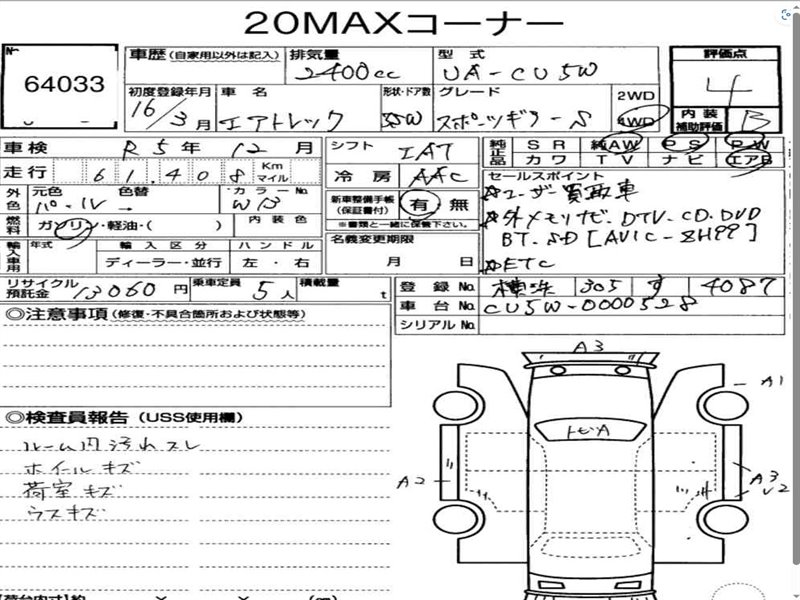 20MAXコーナー
No
64033
車歴(自家用以外は記入) 排気量 2400cc 型式 UA-CU5W
評価点 4
内装補助評価 B
初度登録年月 16/3月 車名 エアトレック 形状・ドア数 5W グレード スポーツギアー S 2WD 4WD
車検 R5年12月
走行 61,408 Km マイル
シフト IAT
冷房 AAC
純正品 SR 純AW PS PW
カワ TV ナビ エアB
外色 元色 パール 色替 → カラーNo W13
燃料 ガソリン・軽油・( ) 内装色
新車整備手帳(保証書付) 有 無
※書類と一緒に保管下さい。
セールスポイント
☆ユーザー買取車
☆外メモリナビ. DTV.CD.DVD
BT.SD [AVIC-ZH99]
☆ETC
輸入車用 年式 輸入区分 ディーラー・並行 ハンドル 左・右
名義変更期限 月 日
リサイクル預託金 13060円 乗車定員 5人 積載量 t
登録No. 横浜 305 す 4087
車台No. CU5W-0000528
シリアルNo.
◎注意事項(修復・不具合箇所および状態等)
◎検査員報告(USS使用欄)
ルーム内汚れスレ
ホイールキズ
荷室キズ
ラスキズ
A3
A1
トビA
A2
A3
U2